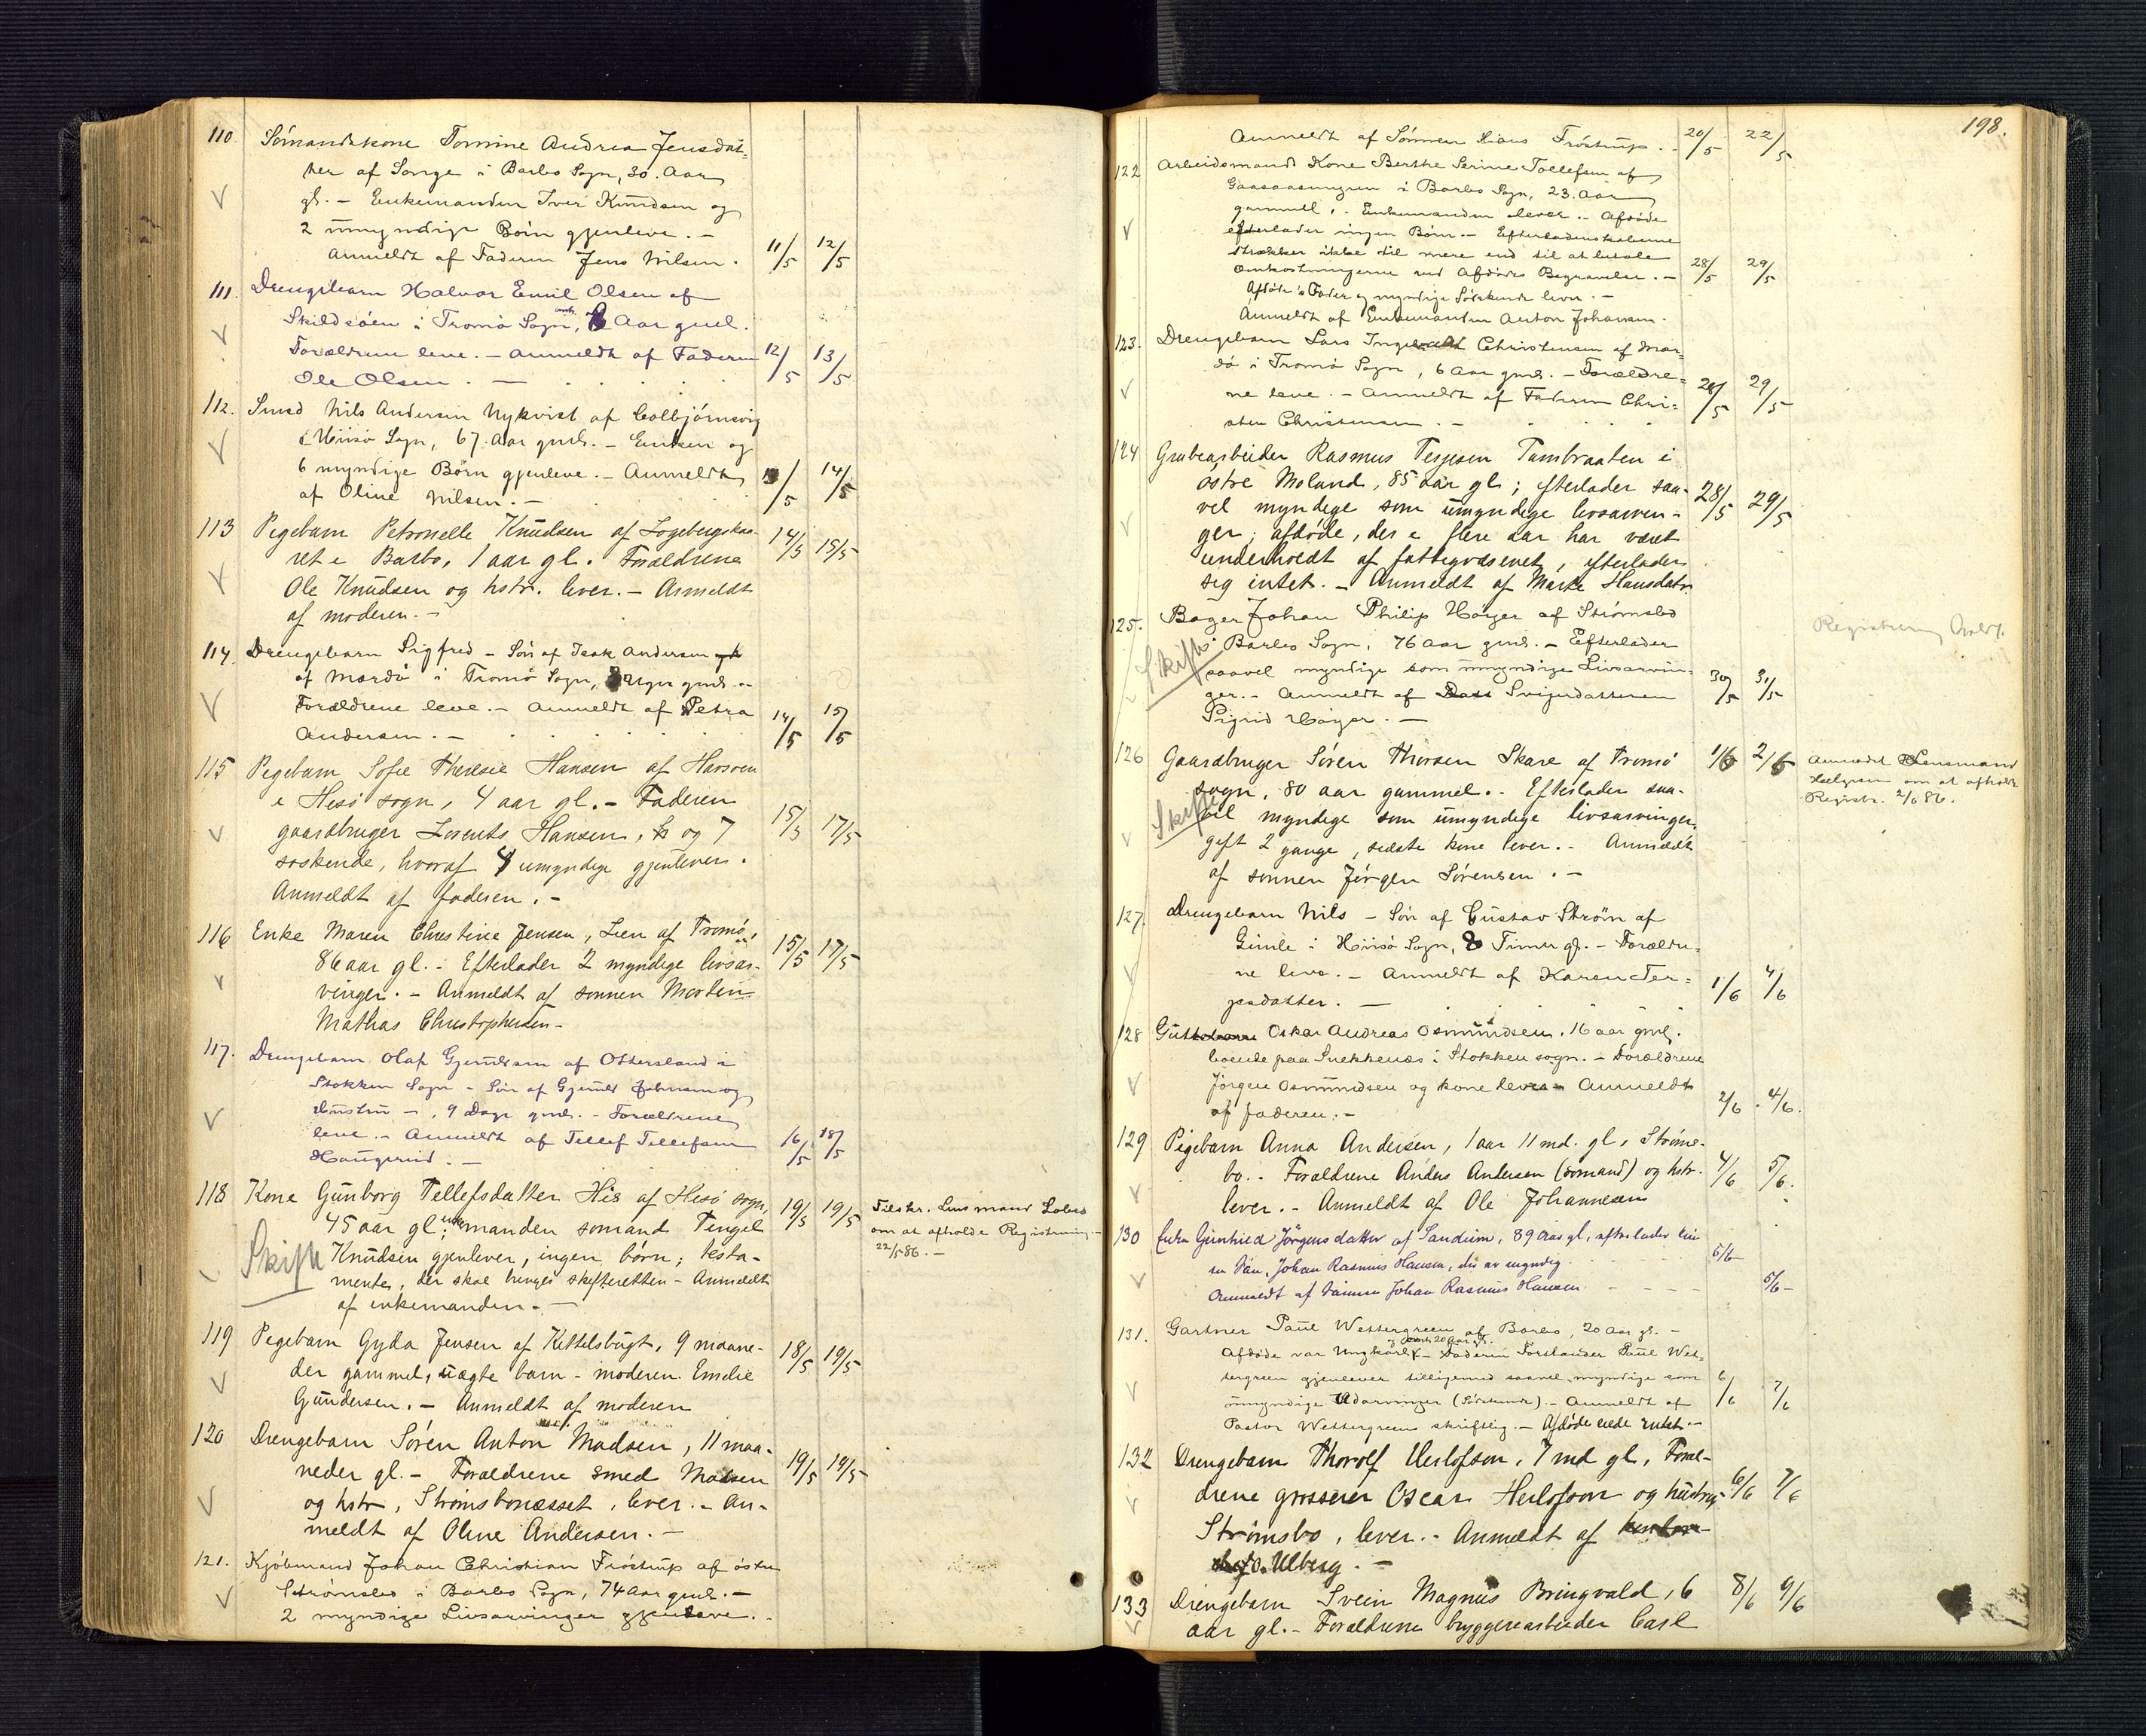 110. Sömandskone Tomine Andrea Jensdat=
ter af Songe i Barbo Sogn, 30. Aar
gl. - Enkemanden Iver Knudsen og
2 umyndige Börn gjenleve. -
Anmeldt af Faderen Jens Nilsen. 11/5 12/5
111. Drengebarn Halvor Emil Olsen af
Skildsöen i Tromö Sogn, 6 Aar gml.
Forældrene leve. - Anmeldt af Faderen 12/5 13/5
Ole Olsen. -
112. Smed Nils Andersen Nykvist af Colbjörnsvig
i Hisö Sogn, 67 Aar gml. - Enken og
6 myndige Börn gjenleve. - Anmeldt /5 14/5
af Oline Nilsen. -
113 Pigebarn Petronelle Knudsen af Logebergskar-
ret i Barbo, 1 aar gl. Forældrene 14/5 15/5
Ole Knudsen og hstr. lever. - Anmeldt
af moderen. -
114. Drengebarn Sigfred - Sön af Isak Andersen
af Mærdö i Tromö Sogn, 3 uger gml. -
Forældrene leve. - Anmeldt af Petra
Andersen. - 14/5 15/5
115 Pigebarn Sofie Theresie Hansen af Havsöen
i Hisö sogn, 4 aar gl. - Faderen
gaardbruger Lorents Hansen, og 7 15/5 17/5
söskende, hvoraf 4 umyndige gjenlever.
Anmeldt af faderen. -
116 Enke Maren Christine Jensen, Lien af Tromö,
86 aar gl. - Efterlader 2 myndige livsar- 15/5 17/5
vinger. - Anmeldt af sönnen Morten
Mathias Christophersen -
117. Drengebarn Olaf Gjeruldsen af Ottersland i
Stokken Sogn - Sön af Gjeruld Johnsen og
Hustru -, 9 Dage gml. - Forældrene
leve. - Anmeldt af Tellef Tellefsen 16/5 18/5
Haugerud. -
118 Kone Gunborg Tellefsdatter His af Hisö sogn, 19/5 19/5 Tilskr. Lensmand
45 aar gl.; enkemanden sömand Tengel om at afholde Registrering -
Skifte Knudsen gjenlever, ingen börn; testa- 22/5 86. -
mente, der skal bringes skifteretten - Anmeldt
af enkemanden. -
119 Pigebarn Gyda Jensen af Kittelsbugt, 9 maane-
der gammel, uægte barn - moderen Emilie 18/5 19/5
Gundersen. - Anmeldt af moderen
120 Drengebarn Sören Anton Madsen, 11 maa-
neder gl. - Forældrene smed Madsen 19/5 19/5
og hstr, Strömsbonæsset, lever. - An-
meldt af Oline Andersen. -
121. Kjöbmand Johan Christian Fröstrup af östre
Strömsbo i Barbo Sogn, 74 Aar gml. -
2 myndige Livsarvinger gjenleve. -
198.
Anmeldt af Sönnen Hans Fröstrup. - 20/5 22/5
122 Arbeidsmands Kone Berthe Serine Tollefsen af
Gaasaasmyren i Barbo Sogn, 23. Aar
gammel. - Enkemanden lever. - Afdöde
efterlader ingen Börn. - Efterladenskaberne
strækker ikke til mere end til at betale 28/5 29/5
Omkostningerne ved Afdödes Begravelse. -
Afdöde's Fader og myndige Söskende lever. -
Anmeldt af Enkemanden Anton Johansen.
123. Drengebarn Lars Ingevald Christensen af Mær=
dö i Tromö Sogn, 6 Aar gml. - Forældre=
ne leve. - Anmeldt af Faderen Chri= 28/5 29/5
sten Christensen. -
124 Grubearbeider Rasmus Terjesen Tambraaten i
östre Moland, 85 aar gl; efterlader saa-
vel myndige som umyndige livsarvin- 28/5 29/5
ger; afdöde, der i flere aar har været
underholdt af fattigvæsenet, efterlader
sig intet. - Anmeldt af Marte Hansdatr.
125. Bager Johan Philip Höyer af Strömsbo
i Barbo Sogn, 76 aar gml. - Efterlader Registrering
Skifte saavel myndige som umyndige Livsarvin=
ger. - Anmeldt af Svigerdatteren 30/5 31/5
Sigrid Höyer. -
126 Gaardbruger Sören Thorsen Skare af Tromö 1/6 2/6 Anmodet Lensmand
sogn, 80 aar gammel. - Efterlader saa- Helgesen om at afholde
Skifte vel myndige som umyndige livsarvinger, Registr. 2/6 86.
gift 2 gange, sidste kone lever. - Anmeldt
af sönnen Jörgen Sörensen. -
127. Drengebarn Nils - Sön af Gustav Ström af
Gimle i Hisö Sogn, 8 Timer gl. - Forældre-
ne leve. - Anmeldt af Karen Ter=
jesdatter. - 1/6 4/6
128 Gut Oskar Andreas Osmundsen. 16 aar gml.
boende paa Snekkenæs i Stokken sogn. - Forældrene
Jörgen Osmundsen og kone leve - Anmeldt
af faderen. - 2/6 4/6.
129 Pigebarn Anna Andersen, 1 aar 11 md. gl, Ströms-
bo. - Forældrene Anders Andersen (sömand) og hstr. 4/6 5/6.
lever. - Anmeldt af Ole Johannesen
130 Enke Gunhild Jörgensdatter af Sandum, 89 Aar gl, efterlader
en Sön, Johan Rasmus Hansen, der er myndig. 5/6 -
Anmeldt af Sönnen Johan Rasmus Hansen - - - 5/6 -
131. Gartner Paul Wettergreen af Barbo, 20 Aar gl. -
Afdöde var Ungkarl - Faderen Forstander Paul Wet=
tergreen gjenlever tilligemed saavel myndige som
umyndige Udarvinger (Söskende) - Anmeldt af 6/6 7/6
Pastor Wettergreen skriftlig - Afdöde eiede intet. -
132 Drengebarn Thorolf Herlofson, 7 md gl, Foræl-
drene grosserer Oscar Herlofson og hustru, 6/6 7/6
Strömsbo, lever. - Anmeldt af
O. Ulberg. -
133 Drengebarn Svein Magnus Bringvald, 6 8/6 9/6
aar gl. - Forældrene bryggeriarbeider Carl